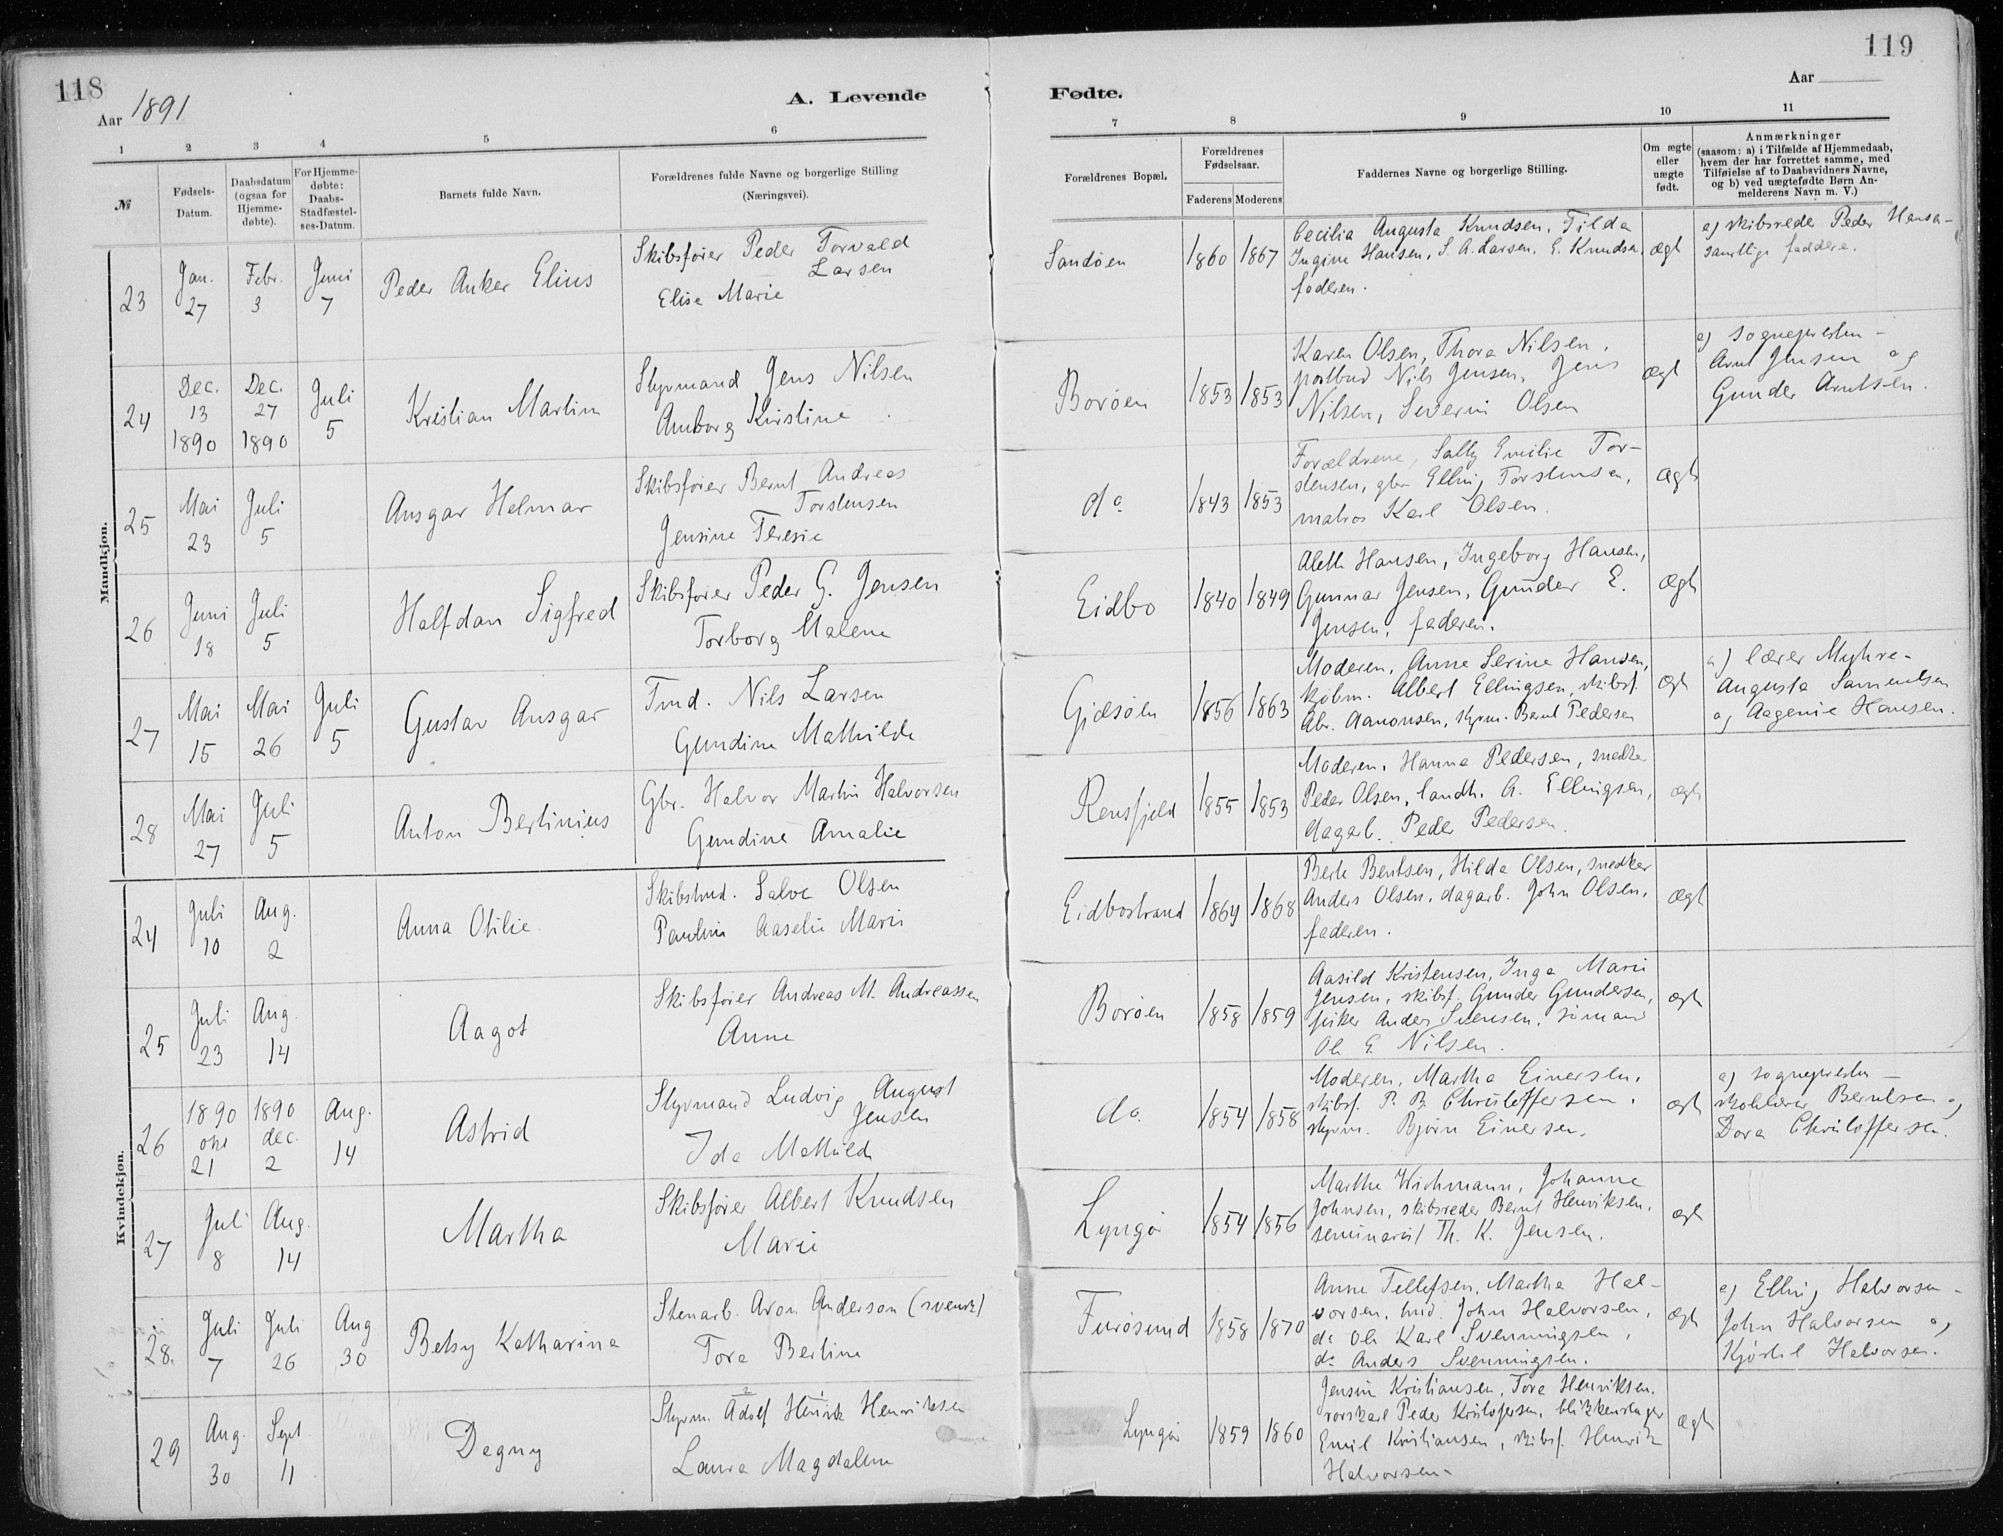 118
Aar 1891
A. Levende
1 2 3 4 5 6
№
Fødsels-Datum.
Daabsdatum (ogsaa for Hjemme-døbte).
For Hjemme-døbte: Daabs-Stadfæstel-ses-Datum.
Barnets fulde Navn.
Forældrenes fulde Navne og borgerlige Stilling
(Næringsvei).
Mandkjøn.
23 Jan. 27 Febr. 3 Juni 7 Peder Anker Elius
Skibsfører Peder Torvald
Larsen
Elise Marie
24 Dec. 13 1890 Dec. 27 1890 Juli 5 Kristian Martin
Styrmand Jens Nilsen
Amborg Kirstine
25 Mai 23 Juli 5 Ansgar Helmar
Skibsfører Bernt Andreas
Torstensen
Jensine Teresie
26 Juni 18 Juli 5 Halfdan Sigfred
Skibsfører Peder G. Jensen
Torborg Malene
27 Mai 15 Mai 26 Juli 5 Gustav Ansgar
Tmd. Nils Larsen
Gundine Mathilde
28 Mai 27 Juli 5 Anton Bertinius
Gbr. Halvor Martin Halvorsen
Gundine Amalie
Kvindekjøn.
24 Juli 10 Aug. 2 Anna Otilie
Skibstmd. Salve Olsen
Pauline Aaselie Marie
25 Juli 23 Aug. 14 Aagot
Skibsfører Andreas M. Andreassen
Anne
26 1890 okt 21 1890 dec. 2 Aug. 14 Astrid
Styrmand Ludvig August
Jensen
Ida Mathilde
27 Juli 8 Aug. 14 Martha
Skibsfører Albert Knudsen
Marie
28. Juli 7 Juli 26 Aug 30 Betsy Katharina
Stenarb. Aron Anderson (svensk)
Tora Bertine
29 Aug. 30 Sept. 11 Dagny
Styrm. Adolf Henrik Henriksen
Laura Magdalene
119
Aar
Fødte.
7 8 9 10 11
Forældrenes Bopæl.
Forældrenes Fødselsaar.
Faderens Moderens
Faddernes Navne og borgerlige Stilling.
Om ægte eller uægte født.
Anmærkninger
(saasom: a) i Tilfælde af Hjemmedaab,
hvem der har forrettet samme, med
Tilføielse af to Daabsvidners Navne,
og b) ved uægtefødte Børn An-
melderens Navn m. V.)
Sandøen 1860 1867
Cecilia Augusta Knudsen, Tilda
Ingine Hansen, S. A. Larsen, E. Knudsen,
faderen.
ægt
a) skibsrede Peder Hansen-
samtlige faddere.
Borøen 1853 1853
Karen Olsen, Thora Nilsen,
postbud Nils Jensen, Jens
Nilsen, Severin Olsen
ægt
a) sognepresten -
Arnt Jensen og
Gunder Arntsen.
do 1843 1853
Forældrene, Sally Emilie Tor-
stensen, gbr Elling Torstensen,
matros Karl Olsen.
ægt
Eidbo 1840 1849
Aleth Hansen, Ingeborg Hansen,
Gunnar Jensen, Gunder E.
Jensen, faderen.
ægt
Gjesøen 1856 1863
Moderen, Anne Serine Hansen,
kjøbm. Albert Ellingsen, skibsf.
Abr. Aanonsen, styrm. Bernt Pedersen
ægt
a) lærer Myhre -
Augusta Samuelsen
og Aagenie Hansen.
Rensfjeld 1855 1853
Moderen, Hanna Pedersen, snedker
Peder Olsen, landh. A. Ellingsen,
dagarb. Peder Pedersen.
ægt
Eidbostrand 1864 1868
Berte Bentsen, Hilda Olsen, snedker
Anders Olsen, dagarb. John Olsen,
faderen.
ægt
Borøen 1858 1859
Aasild Kristensen, Inga Marie
Jensen, skibsf. Gunder Gundersen,
fisker Anders Svensen, sømand
Ole G. Nilsen.
ægt
do. 1854 1858
Moderen, Martha Einersen,
skibsf. P. B. Christoffersen,
styrm. Bjørn Einersen.
ægt
a) sognepresten -
skolelærer Berntsen og
Dora Christoffersen.
Lyngør 1854 1856
Marthe Wichmann, Johanne
Johnsen, skibsreder Bernt Henriksen,
seminarist Th. K. Jensen.
ægt
Furøsund 1858 1870
Anne Tellefsen, Martha Hal-
vorsen, tmd. John Halvorsen,
do Ole Karl Svenningsen,
do Anders Svenningsen.
ægt
a) Elling Halvorsen -
John Halvorsen og
Kjøstel Halvorsen.
Lyngør 1859 1860
Jensine Kristiansen, Tora Henriksen,
rorskarl Peder Kristofersen, blikkenslager
Emil Kristiansen, skibsf. Henrik
Halvorsen-
ægt